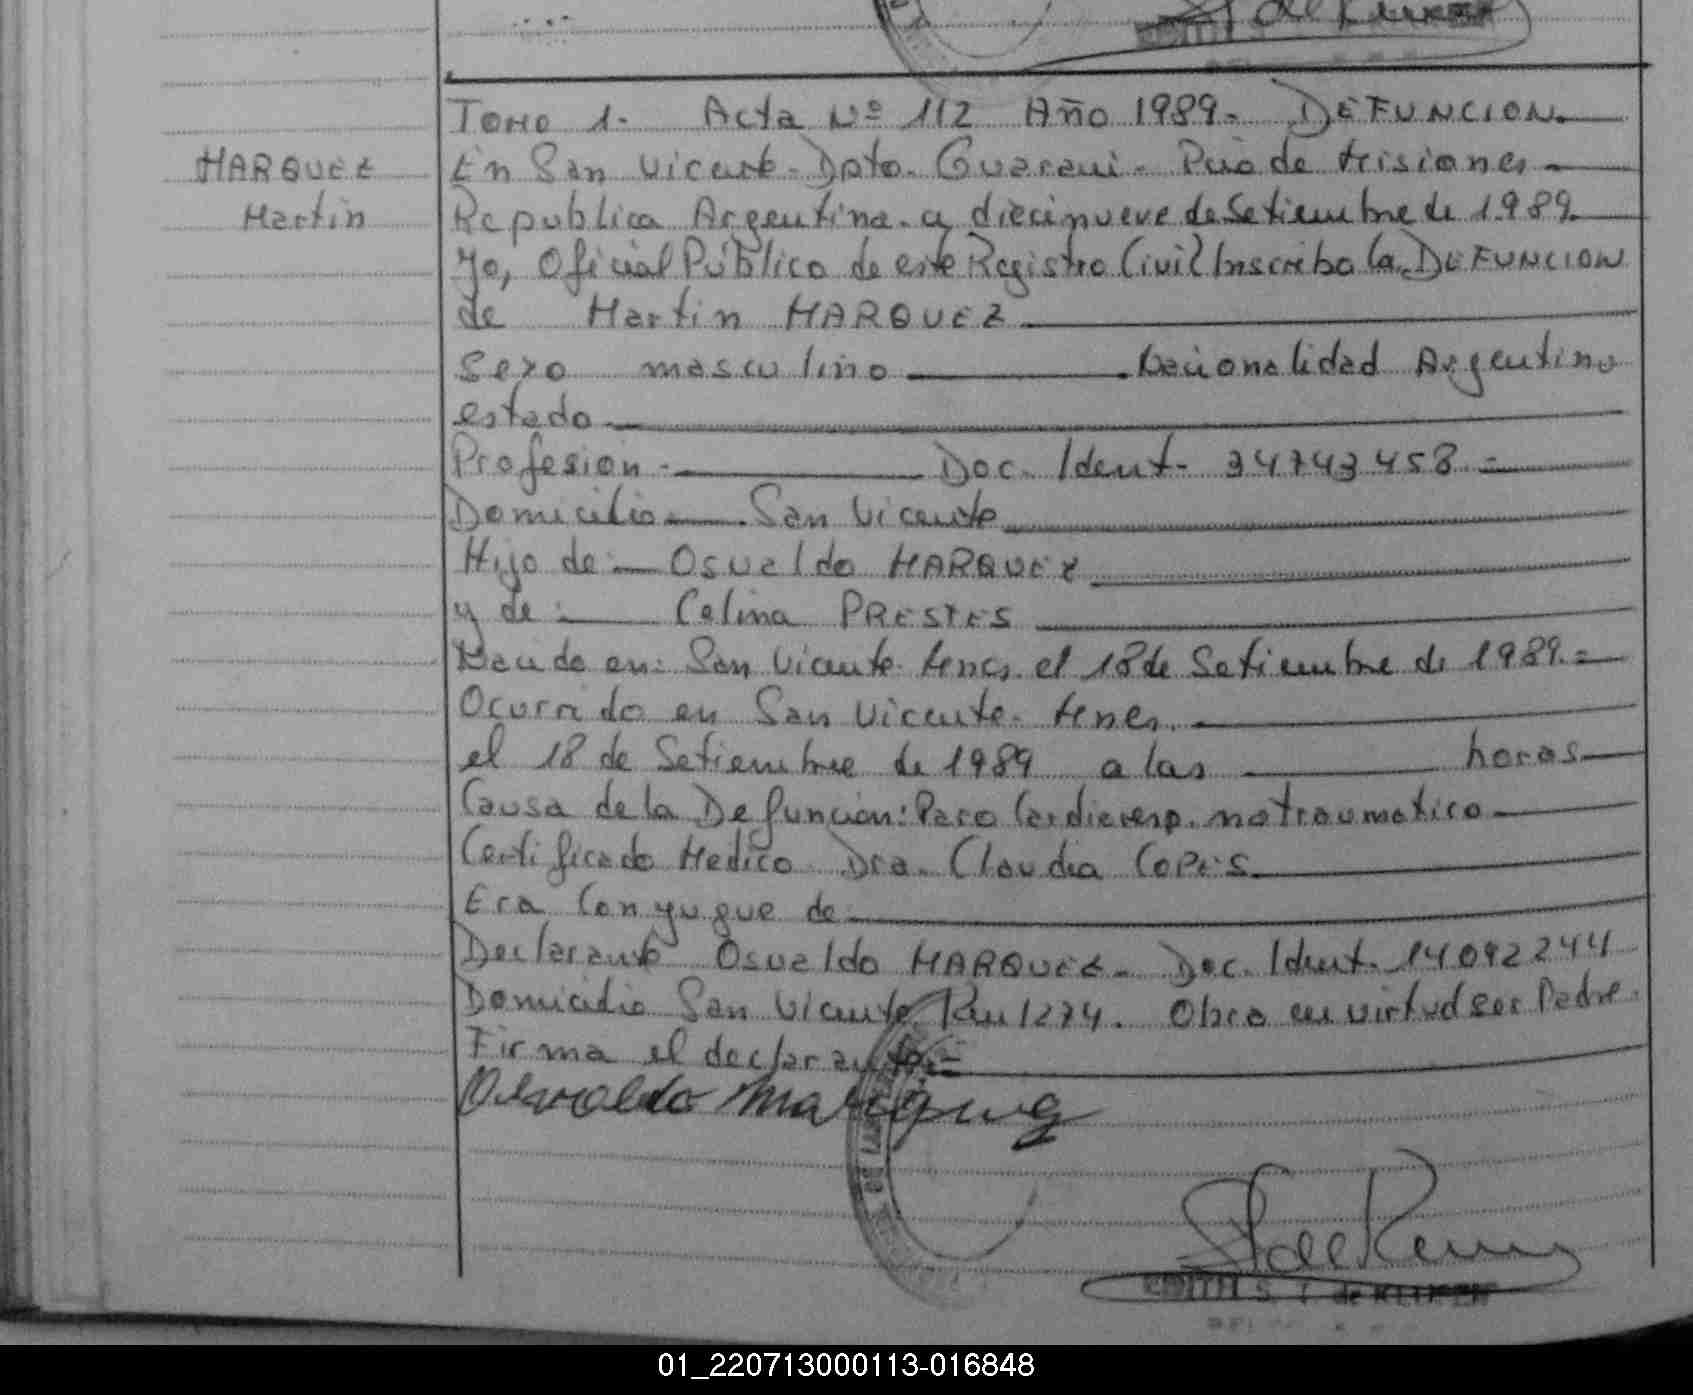 Tomo 1. Acta Nº 112 Año 1989. DEFUNCION.
MARQUEZ
Martin
En San Vicente. Dpto. Guarani. Pcia de Misiones
Republica Argentina. a diecinueve de Setiembre de 1989.
Yo, Oficial Público de este Registro Civil Inscribo la DEFUNCION
de Martin MARQUEZ
Sexo masculino Nacionalidad Argentino
estado
Profesion - Doc. Ident. 34743458.=
Domicilio San Vicente
Hijo de: Osvaldo MARQUEZ
y de: Celina PRESTES
Nacido en: San Vicente. Mnes. el 18 de Setiembre de 1989.=
Ocurrido en San Vicente. Mnes.
el 18 de Setiembre de 1989 a las horas
Causa de la Defuncion: Paro Cardioresp. no traumatico
Certificado Medico Dra. Claudia COPES.
Era Conyugue de
Declarante Osvaldo MARQUEZ. Doc. Ident. 14092244
Domicilio San Vicente Km 1274. Obra en virtud ser Padre.
Firma el declarante.=
Osvaldo Marquez
EDITH S. T. de
01_220713000113-016848